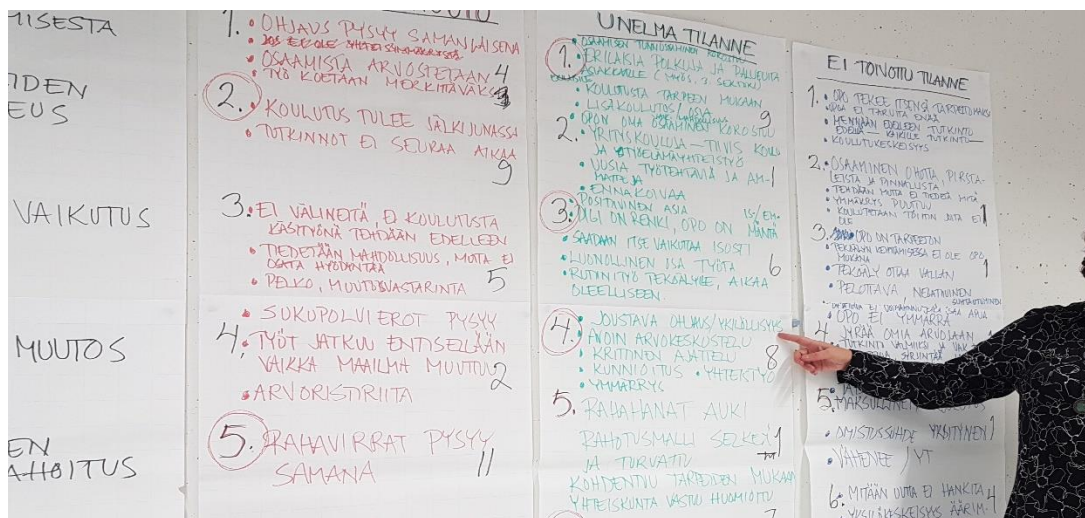 MISESTA
IDEN
EUS
VAIKUTUS
MUUTOS
EN
AHOITUS
1. • OHJAUS PYSYY SAMANLAISENA
• OSAAMISTA ARVOSTETAAN 4
• TYÖ KOETAAN MERKITTÄVÄKSI
2. • KOULUTUS TULEE JÄLKIJUNASSA
• TUTKINNOT EI SEURAA AIKAA
9
3. • EI VÄLINEITÄ, EI KOULUTUSTA
KÄSITYÖNÄ TEHDÄÄN EDELLEEN
• TIEDETÄÄN MAHDOLLISUUS, MUTTA EI
OSATA HYÖDYNTÄÄ
• PELKO, MUUTOSVASTARINTA 5
• SUKUPOLVIEROT PYSYY
4. • TYÖT JATKUU ENTISELLÄÄN
VAIKKA MAAILMA MUUTTUU 2
• ARVORISTIRIITA
5. RAHAVIRRAT PYSYY
SAMANA 11
UNELMA TILANNE
• OSAAMISEN TUNNISTAMINEN
1. • ERILAISIA POLKUJA JA PALVELUITA
ASIAKKAALLE (MYÖS 3. SEKTORI)
• KOULUTUSTA TARPEEN MUKAAN
• LISÄKOULUTUS/ 9
• OPON OMA OSAAMINEN KOROSTUU
2. • YRITYSKOULUJA – TIIVIS KOULU
JA TYÖELÄMÄYHTEISTYÖ
• UUSIA TYÖTEHTÄVIÄ JA AM-
MATTEJA 1
• ENNAKOIVAA
• POSITIIVINEN ASIA
3. • DIGI ON RENKI, OPO ON MÄNTÄ
• SAADAAN ITSE VAIKUTTAA ISOSTI
• LUONNOLLINEN OSA TYÖTÄ 6
• RUTIINITYÖ TEKOÄLYLLE, AIKAA
OLEELLISEEN
4. • JOUSTAVA OHJAUS/YKSILÖLLISYYS
• AVOIN ARVOKESKUSTELU
• KRIITTINEN AJATTELU 8
• KUNNIOITUS • YHTEISTYÖ
• YMMÄRRYS
5. RAHAHANAT AUKI
RAHOITUSMALLI SELKEÄ 1
JA TURVATTU
KOHDENTUU TARPEIDEN MUKAAN
YHTEISKUNTA VASTUU HUOMIOITU
EI TOIVOTTU TILANNE
1. • OPO TEKEE ITSENSÄ TARPEETTOMAKSI
EI TARVITA ENÄÄ
• MENNÄÄN EDELLEEN TUTKINTO
EDELLÄ – KAIKILLE TUTKINTO
• KOULUTUSKESKEISYYS
2. • OSAAMINEN OHUTTA, PIRSTA-
LEISTA JA PINNALLISTA
• TEHDÄÄN MUTTA EI TIEDETÄ MITÄ
• YMMÄRRYS PUUTTUU
• KOULUTETAAN TÖIHIN JOITA EI 1
OLE
3. OPO ON TARPEETON
TEKOÄLYN KEHITTÄMISESSÄ EI OLE OPO
MUKANA
• TEKOÄLY OTTAA VALLAN 1
• PELOTTAVA NEGATIIVINEN
• OPO EI YMMÄRRÄ
4. JYRÄÄ OMIA ARVOJAAN
• TUTKINTO VALMIIKSI
5.
• OMISTUSSUHDE YKSITYINEN 1
• VÄHENEE / YT
6. • MITÄÄN UUTTA EI HANKITA 4
• YKSILÖKESKEISYYS ÄÄRIM-